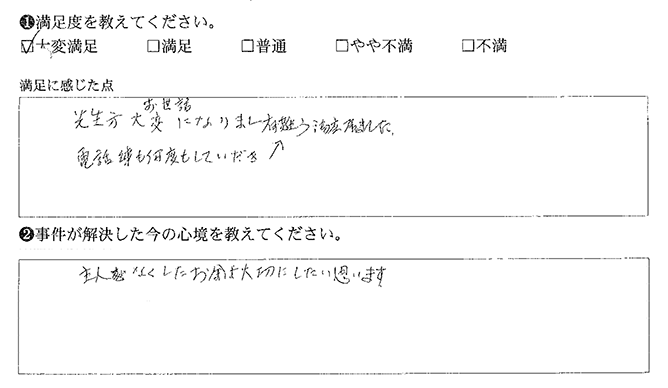 ❶満足度を教えてください。
☑大変満足 □満足 □普通 □やや不満 □不満
満足に感じた点
お世話
先生方 大変 になりまし 有難う御座居ました。
電話 等も何度もしていただき
❷事件が解決した今の心境を教えてください。
主人を なくしたお金を大切にしたい思います